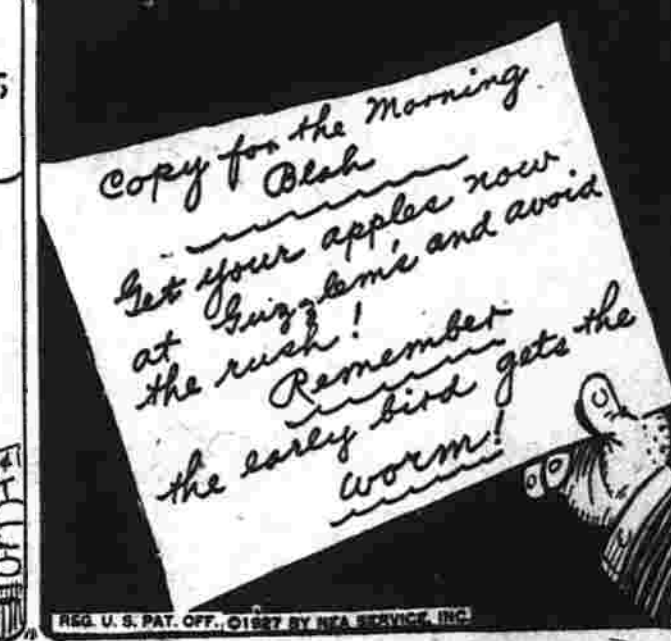 Copy for the Morning
Blah
Get your apples now
at Guzzlem's and avoid
the rush!
Remember
the early bird gets the
worm!
REG. U. S. PAT. OFF., ©1927 BY NEA SERVICE, INC.